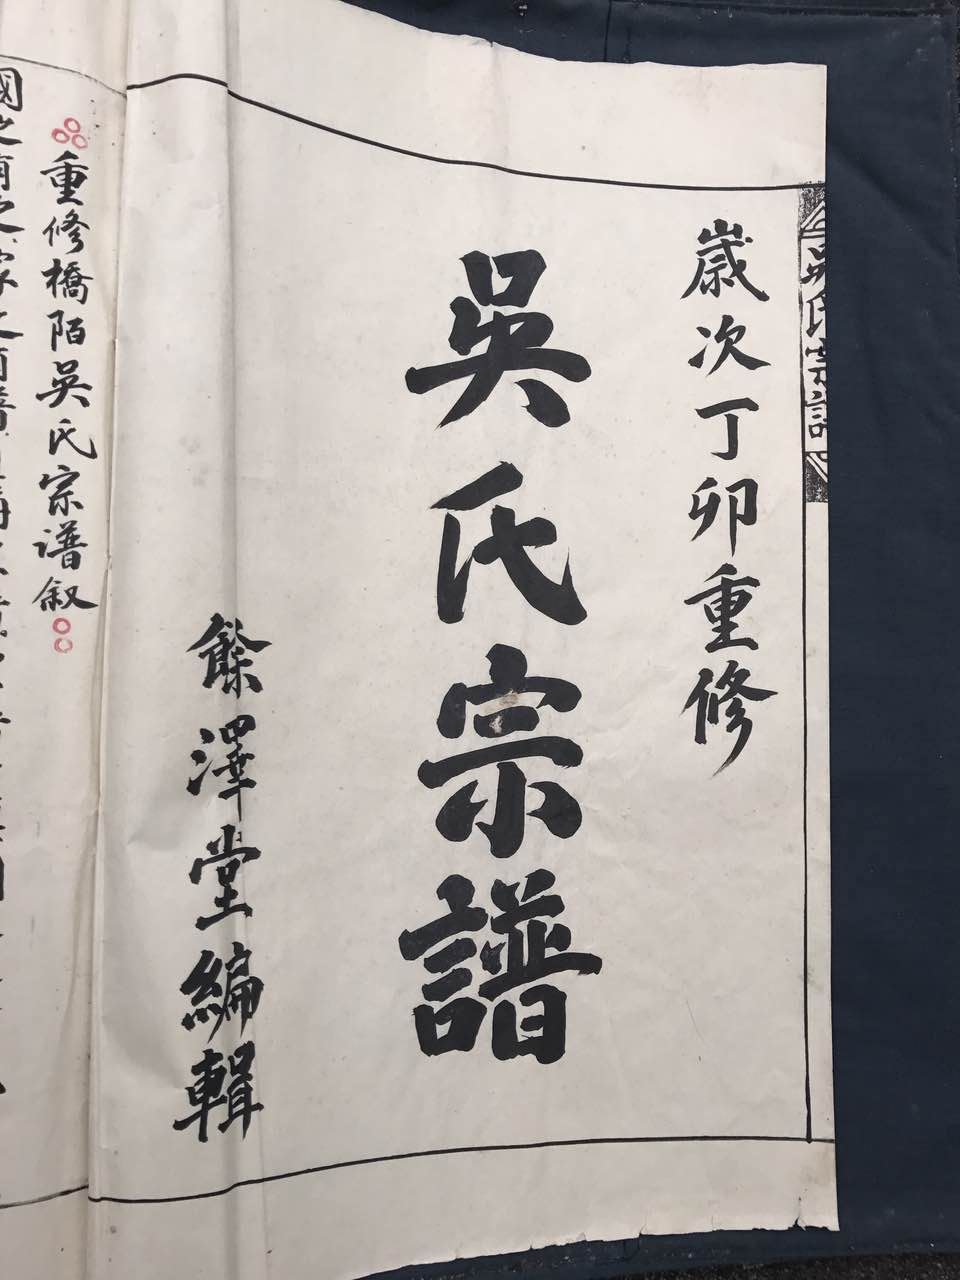 吳氏宗譜
歲次丁卯重修
吳氏宗譜
餘澤堂編輯
重修橋陌吳氏宗谱叙
國之有史家之有譜